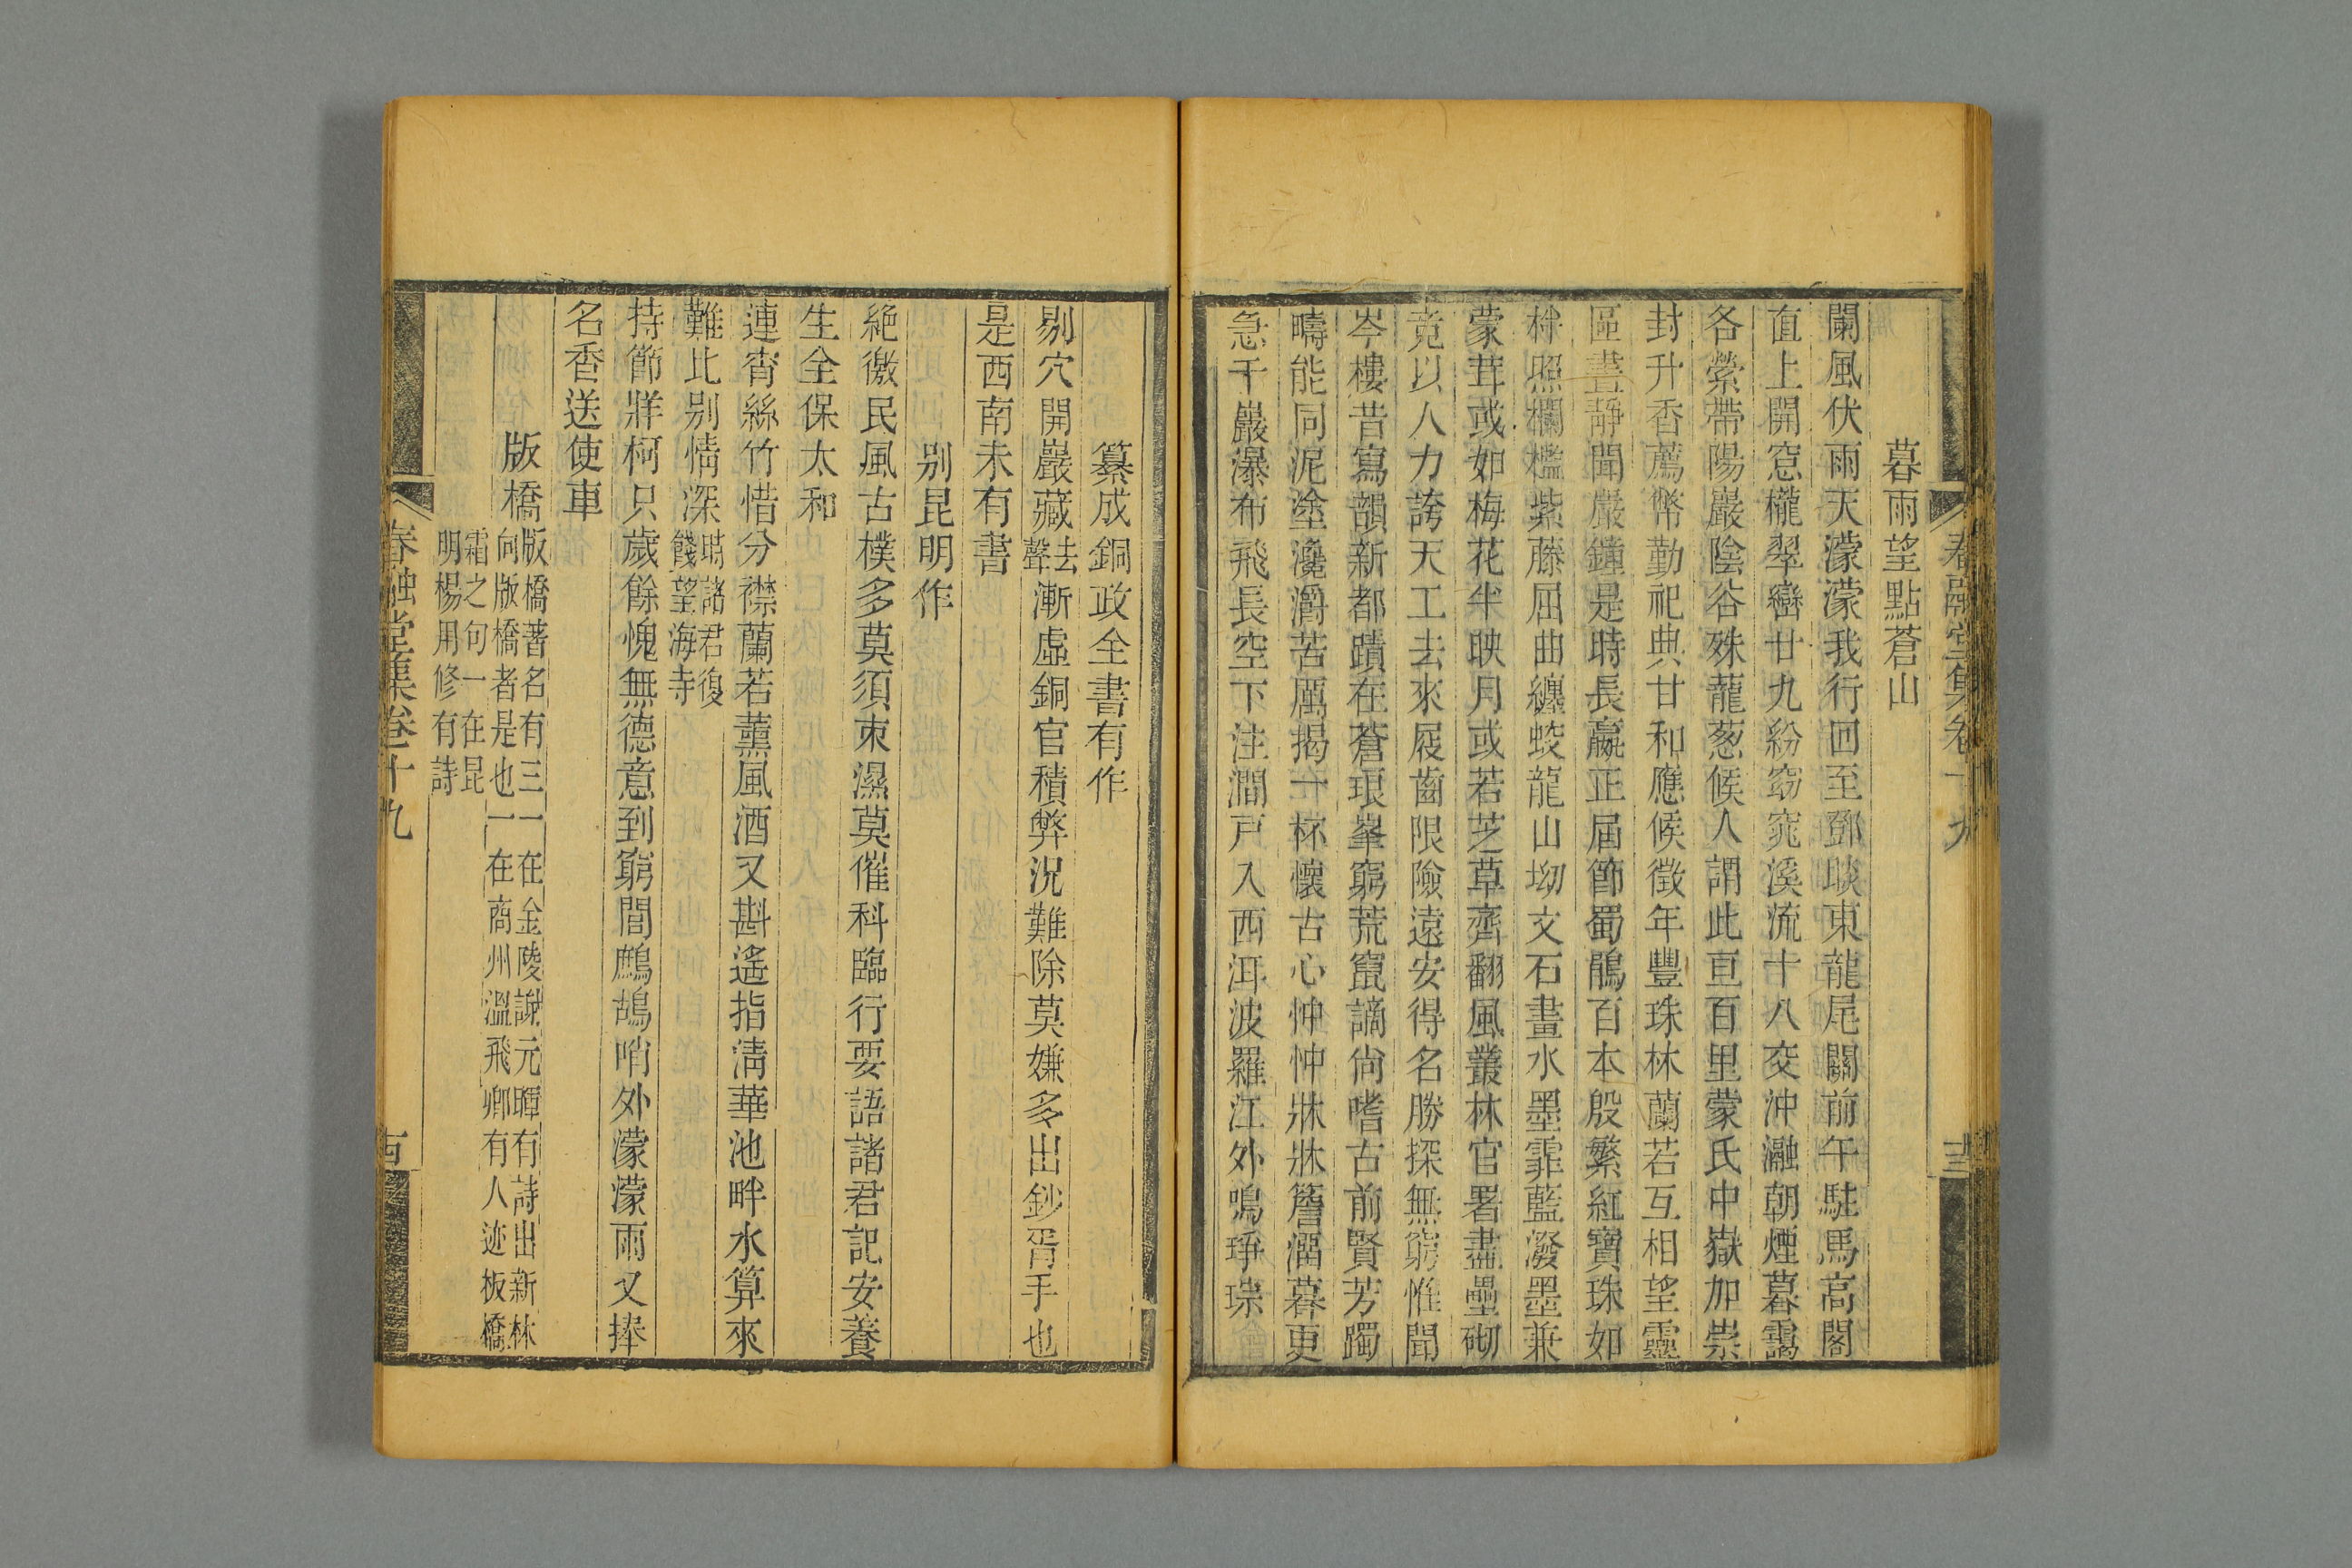 春融堂集卷十九
暮雨望點蒼山
闌風伏雨天濛濛我行回至鄧賧東龍尾關前午駐馬高閣
直上開窓櫳翠巒廿九紛窈窕溪流十八交沖瀜朝煙暮靄
各縈帶陽巖陰谷殊蘢葱候人謂此亘百里蒙氏中嶽加崇
封升香薦幣勤祀典甘和應候徵年豐珠林蘭若互相望靈
區晝靜聞嚴鐘是時長嬴正屆節蜀鵑百本殷繁紅寶珠如
栟照欄檻紫藤屈曲纏蛟龍山坳文石畫水墨霏藍潑墨兼
蒙茸或如梅花半映月或若芝草齊翻風叢林官署盡壘砌
竟以人力誇天工去來屐齒限險遠安得名勝探無窮惟聞
岑樓昔寫韻新都蹟在蒼琅峯窮荒竄謫尙嗜古前賢芳躅
疇能同泥塗瀺灂苦厲揭一杯懷古心忡忡牀牀簷溜暮更
急千巖瀑布飛長空下注澗戸入西洱波羅江外鳴琤琮
纂成銅政全書有作
剔穴開巖藏去聲漸虛銅官積弊況難除莫嫌多出鈔胥手也
是西南未有書
别昆明作
絕徼民風古樸多莫須束濕莫催科臨行要語諸君記安養
生全保太和
連宵絲竹惜分襟蘭若薰風酒又斟遙指淸華池畔水算來
難比别情深時諸君復餞望海寺
持節牂柯只歲餘愧無德意到窮閭鷓鴣哨外濛濛雨又捧
名香送使車
版橋版橋著名有三一在金陵謝元暉有詩出新林
向版橋者是也一在商州溫飛卿有人迹板橋
霜之句一在昆
明楊用修有詩
春融堂集卷十九